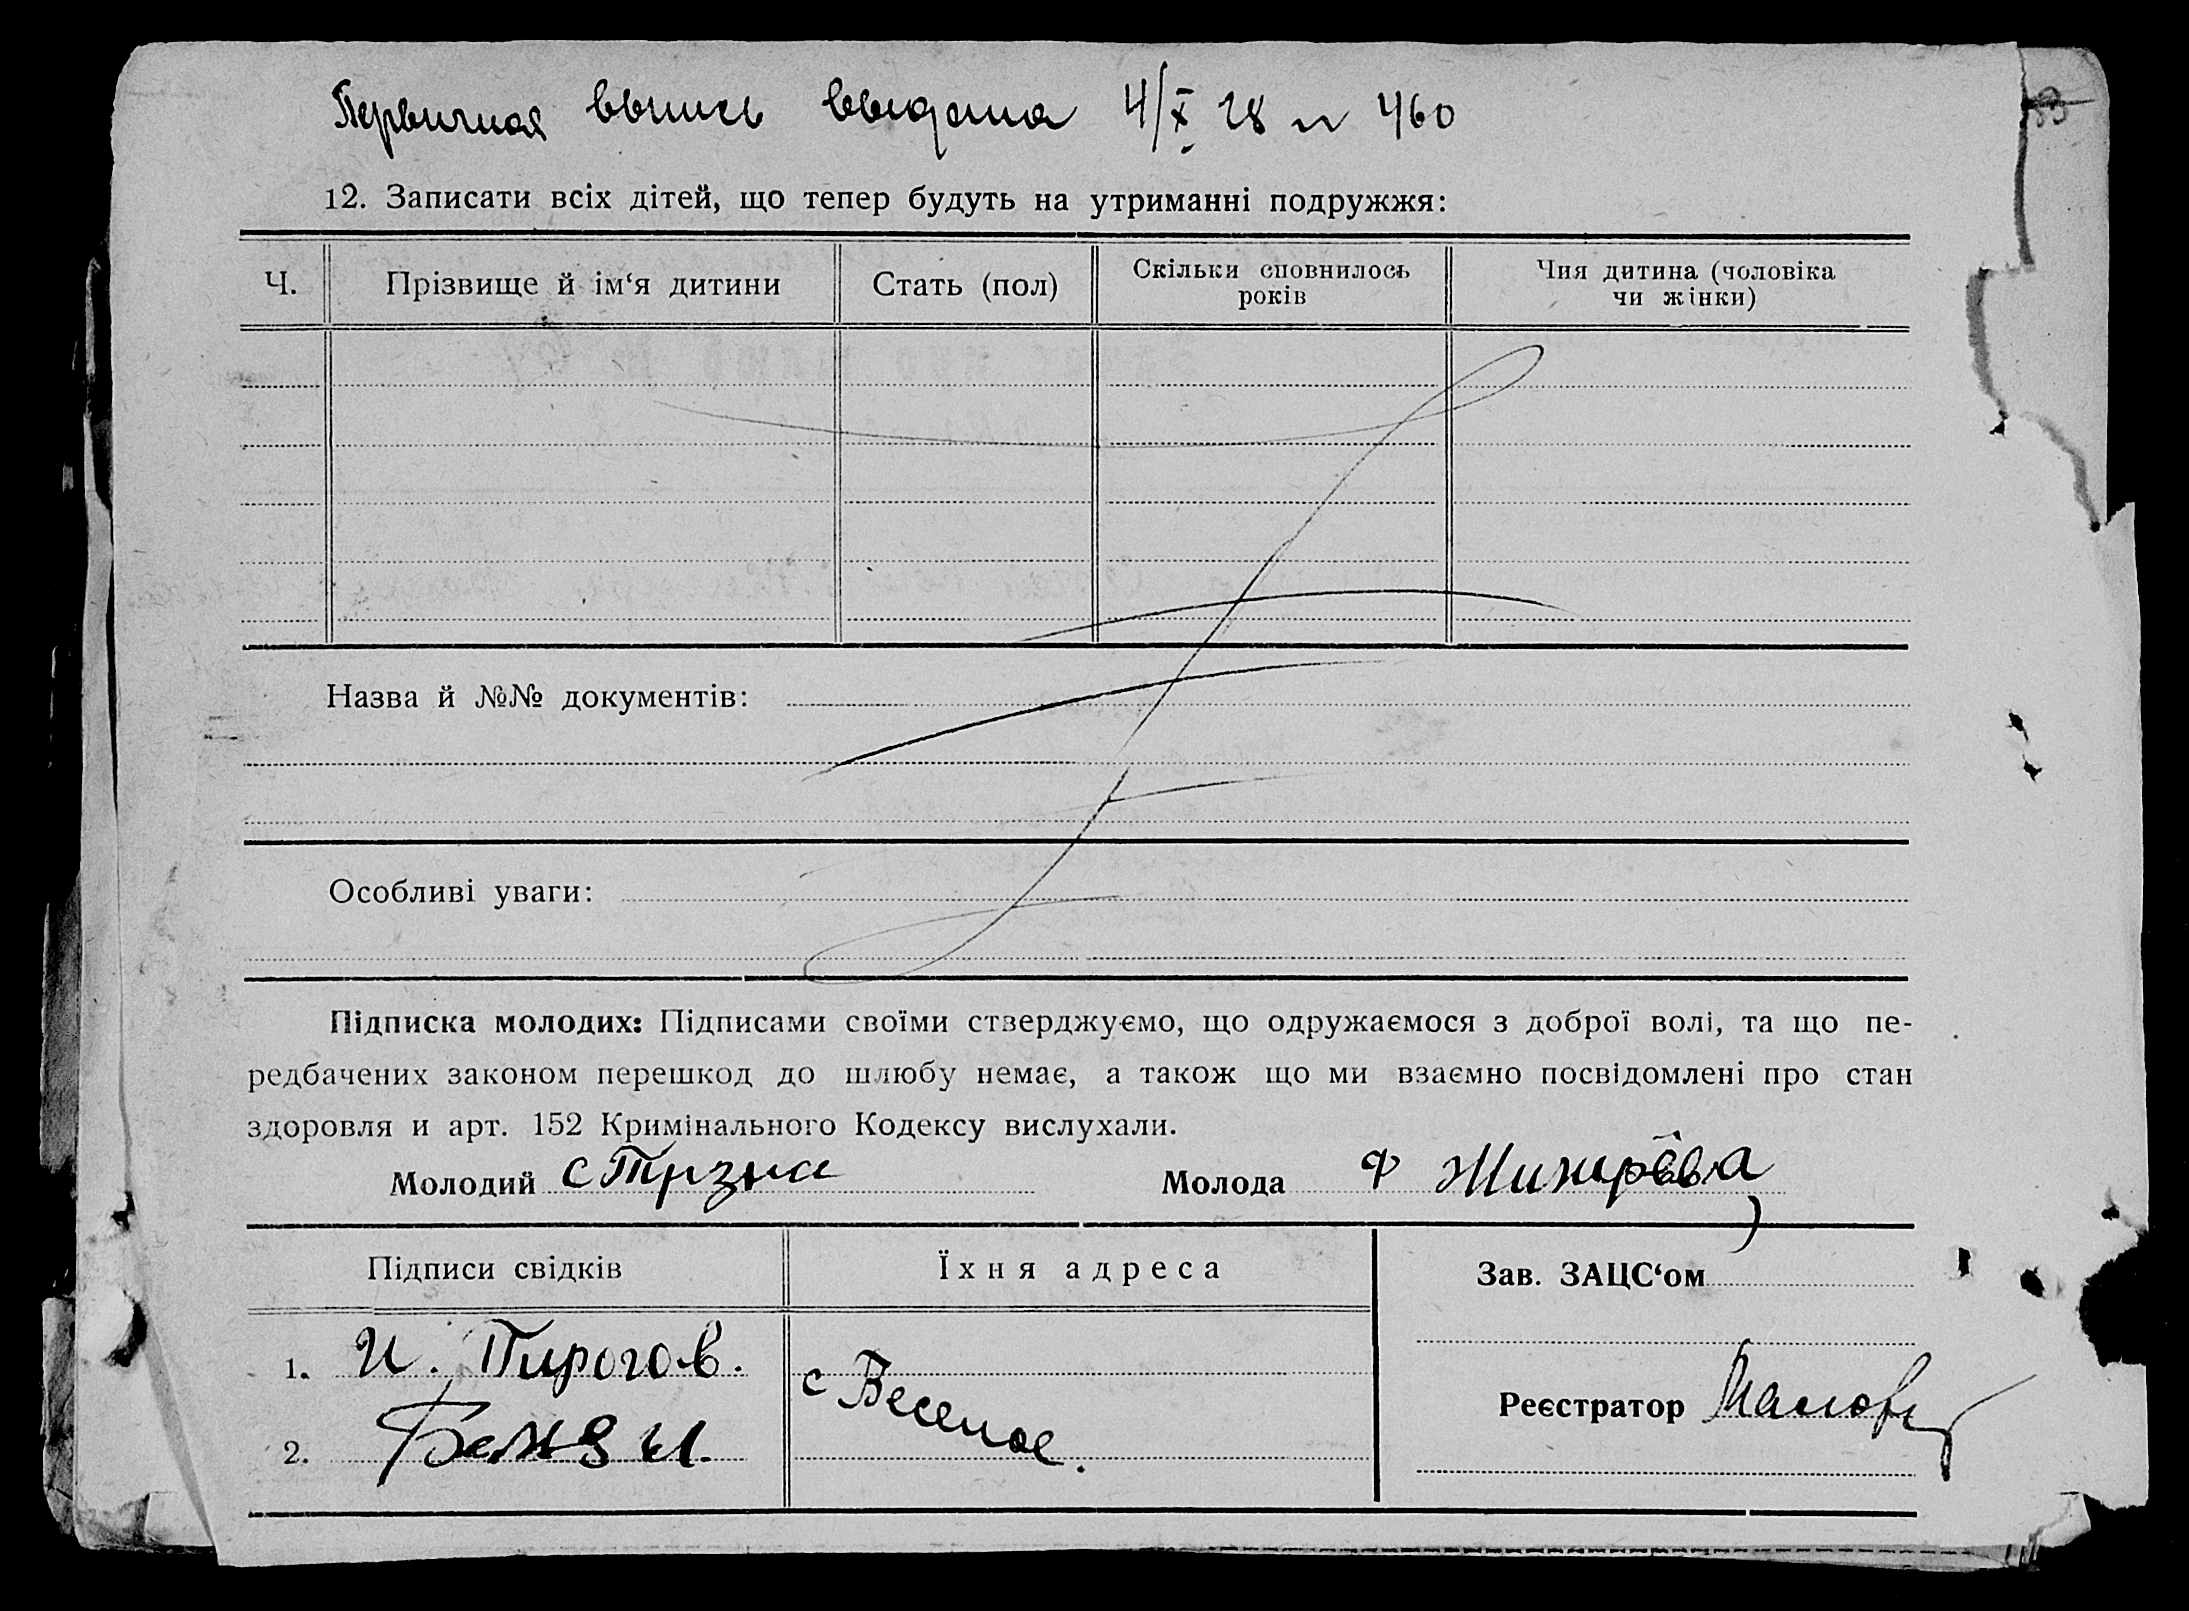 Первичная выпись выдана 4/X 28 № 460
12. Записати всіх дітей, що тепер будуть на утриманні подружжя:
Ч. Прізвище й ім‘я дитини Стать (пол) Скільки сповнилось років Чия дитина (чоловіка чи жінки)
Назва й №№ документів:
Особливі уваги:
Підписка молодих: Підписами своїми стверджуємо, що одружаємося з доброї волі, та що пе-
редбачених законом перешкод до шлюбу немає, а також що ми взаємно посвідомлені про стан
здоровля и арт. 152 Кримінального Кодексу вислухали.
Молодий С Тризна Молода Ф
Підписи свідків Їхня адреса Зав. ЗАЦС‘ом
1. И. Пирогов. с Веселое.
Реєстратор
2.